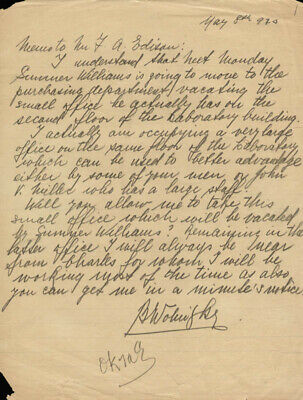 May 8th 920
Memo to Mr T. A. Edison:
I understand that next Monday
Sumner Williams is going to move to the
purchasing department, vacating the
small office he actually has on the
second floor of the Laboratory building.
I actually am occupying a very large
office on the same floor of the Laboratory
which can be used to better advantage
either by some of your men, or John
V. Miller who has a large staff.
Will you allow me to take this
small office which will be vacated
by Sumner Williams? Remaining in the
latter office I will always be near
from Charles for whom I will be
working most of the time as also
you can get me in a minute's notice
OK